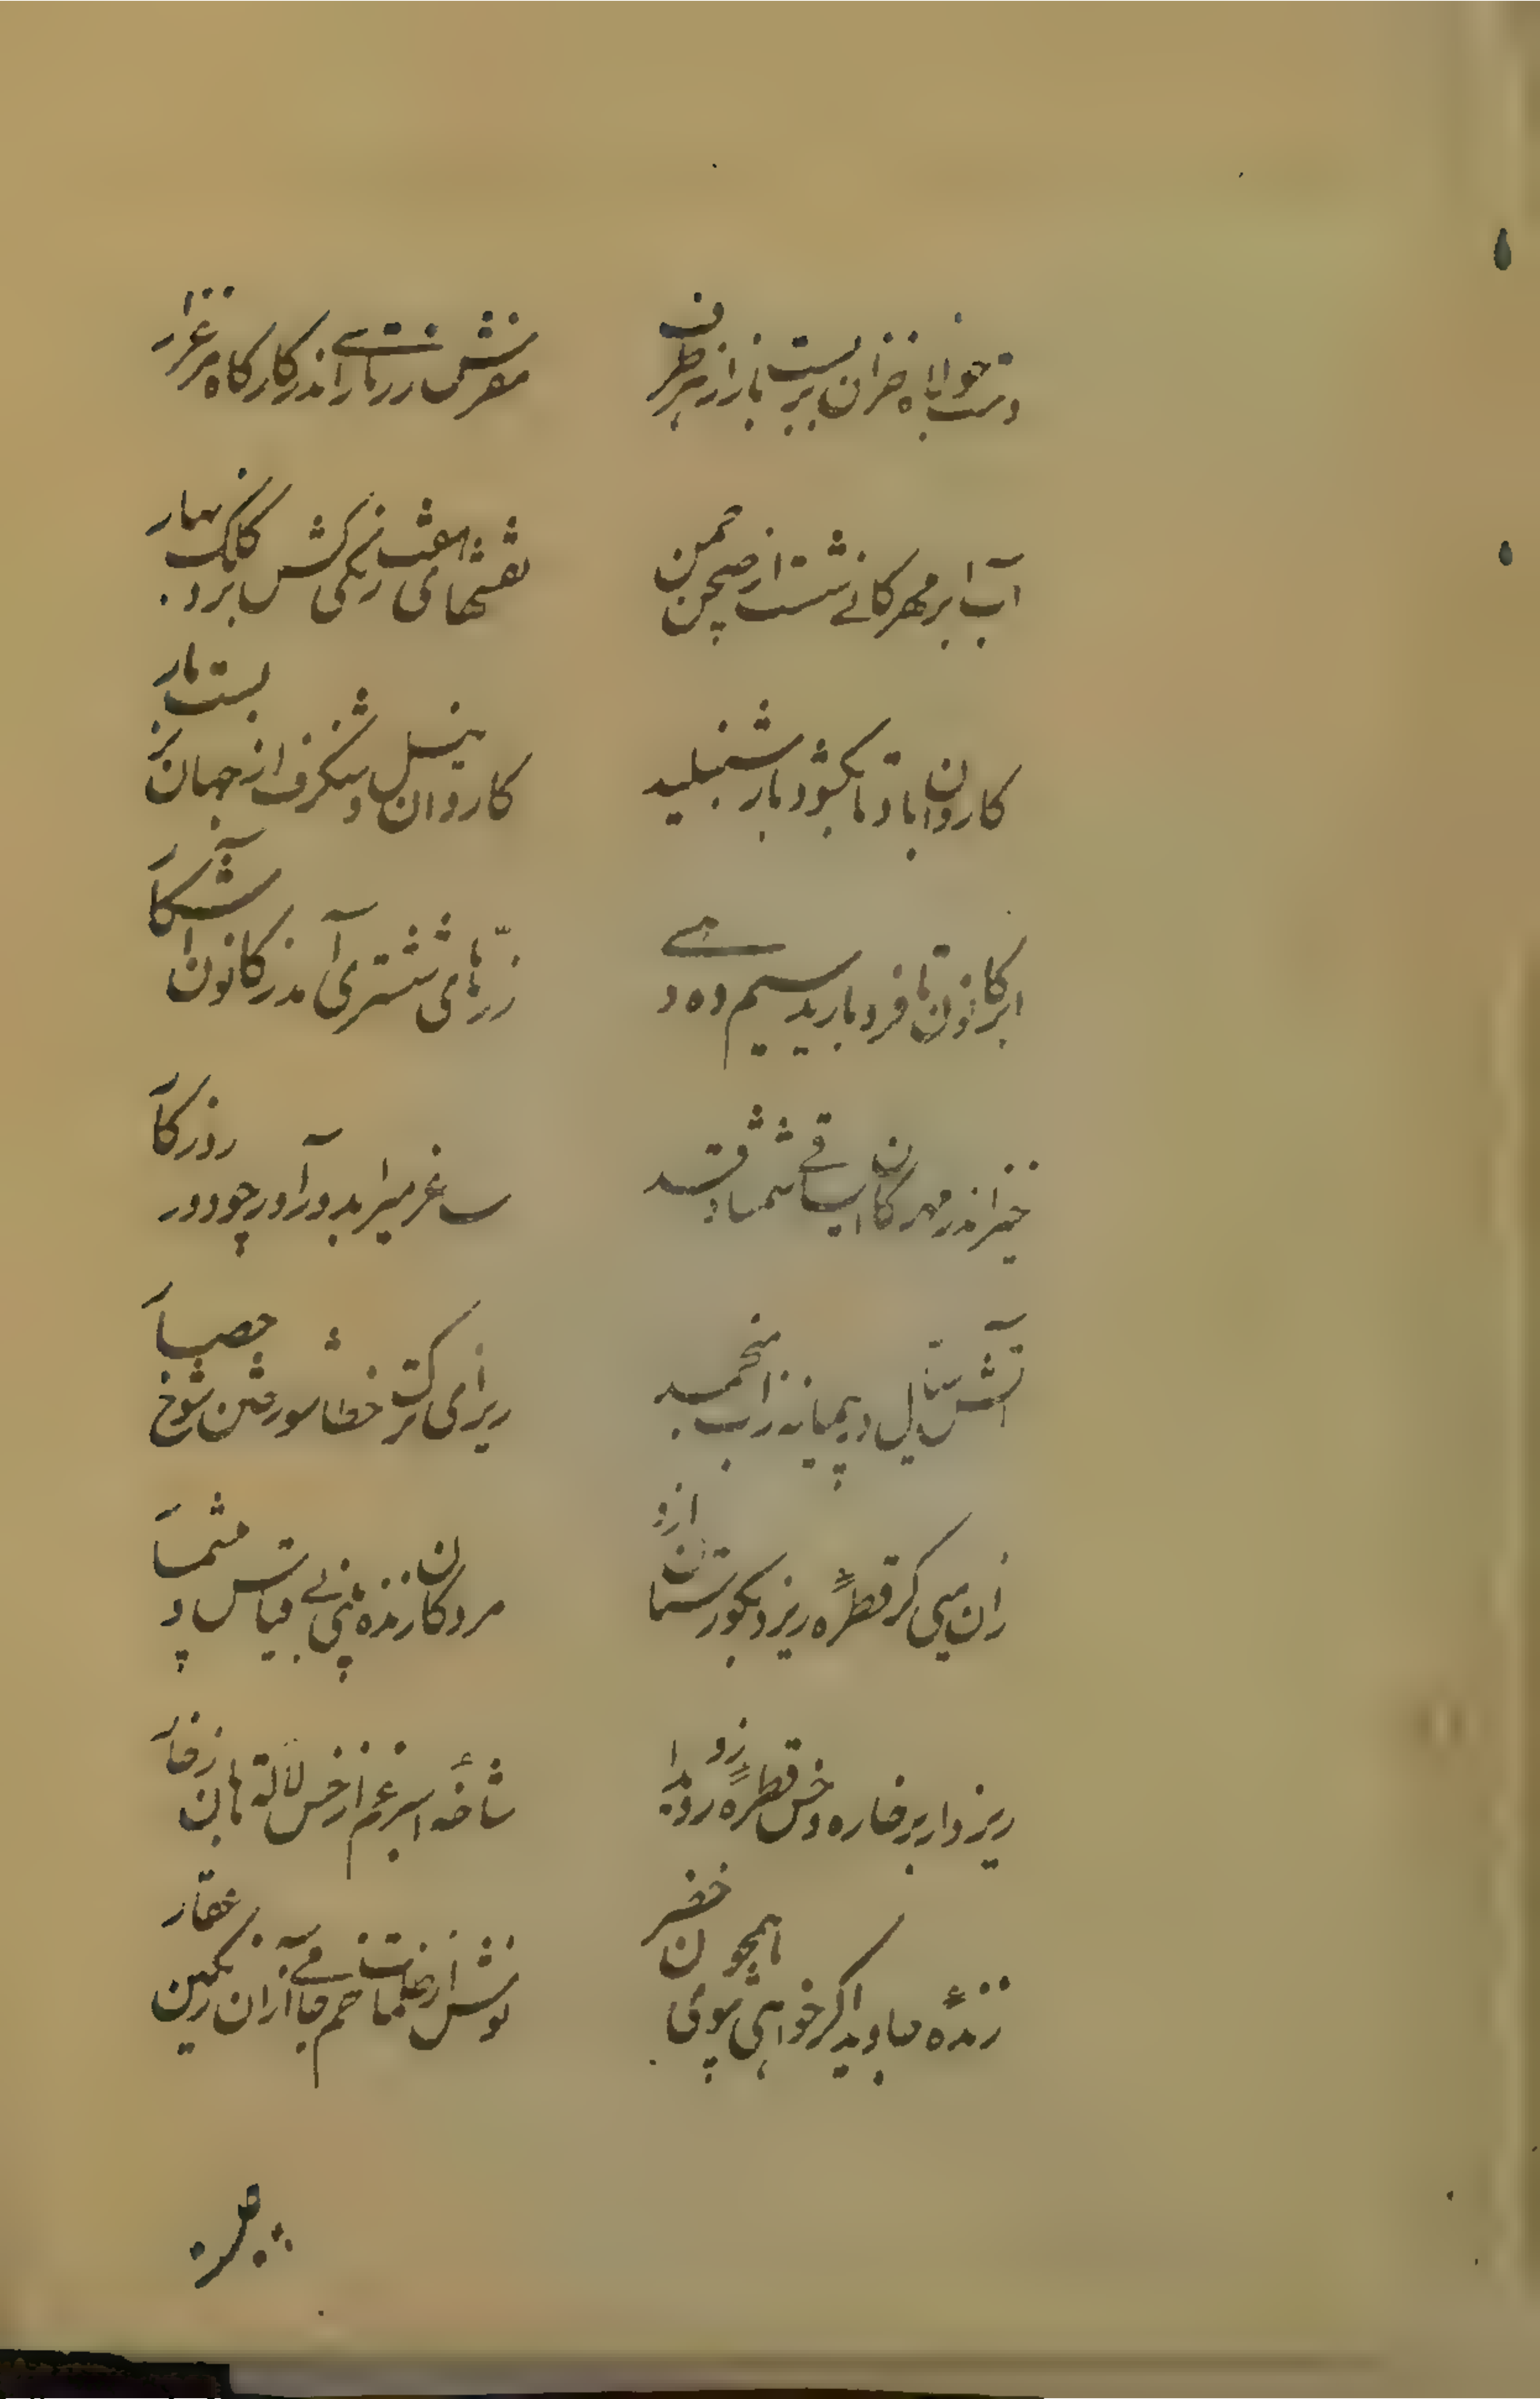 دست جولاه خزان بربست باز از هر طرف
مفرش زربفت را اندر کارگاه مرغزار
آب ابر مهرکانی شست از صحن چمن
نقشهای هفت رنگی کش بزد کلک بهار
کاروان باد تا بگشود بار شنبلید
کاروان نیل و شنگرف از جهان بربست بار
ابر کانون تا فرو بارید سیم ده دهی
زرهای ششتری آمد ز کانون آشکار
خیز اندر مهرکان ای ساقی شمشاد قد
ساغر می را بدور آور چو دور روزکار
آتش سیال در پیمانه ز آب منجمد
ریز ای ترک خطا شور ختن شوخ حصار
زان میی کز قطرهٔ ریزد بکورستان ازو
مردکان زنده بینی بی قیاس و بیشمار
ریزد ار بر خاره و خس قطرهٔ زو روید
شاخه اسپرغم از خس لاله هان زخار
زندهٔ جاوید اگر خواهی شوی همچون خضر
نوش از ظلمات خم جامی از آن رنگین عقار